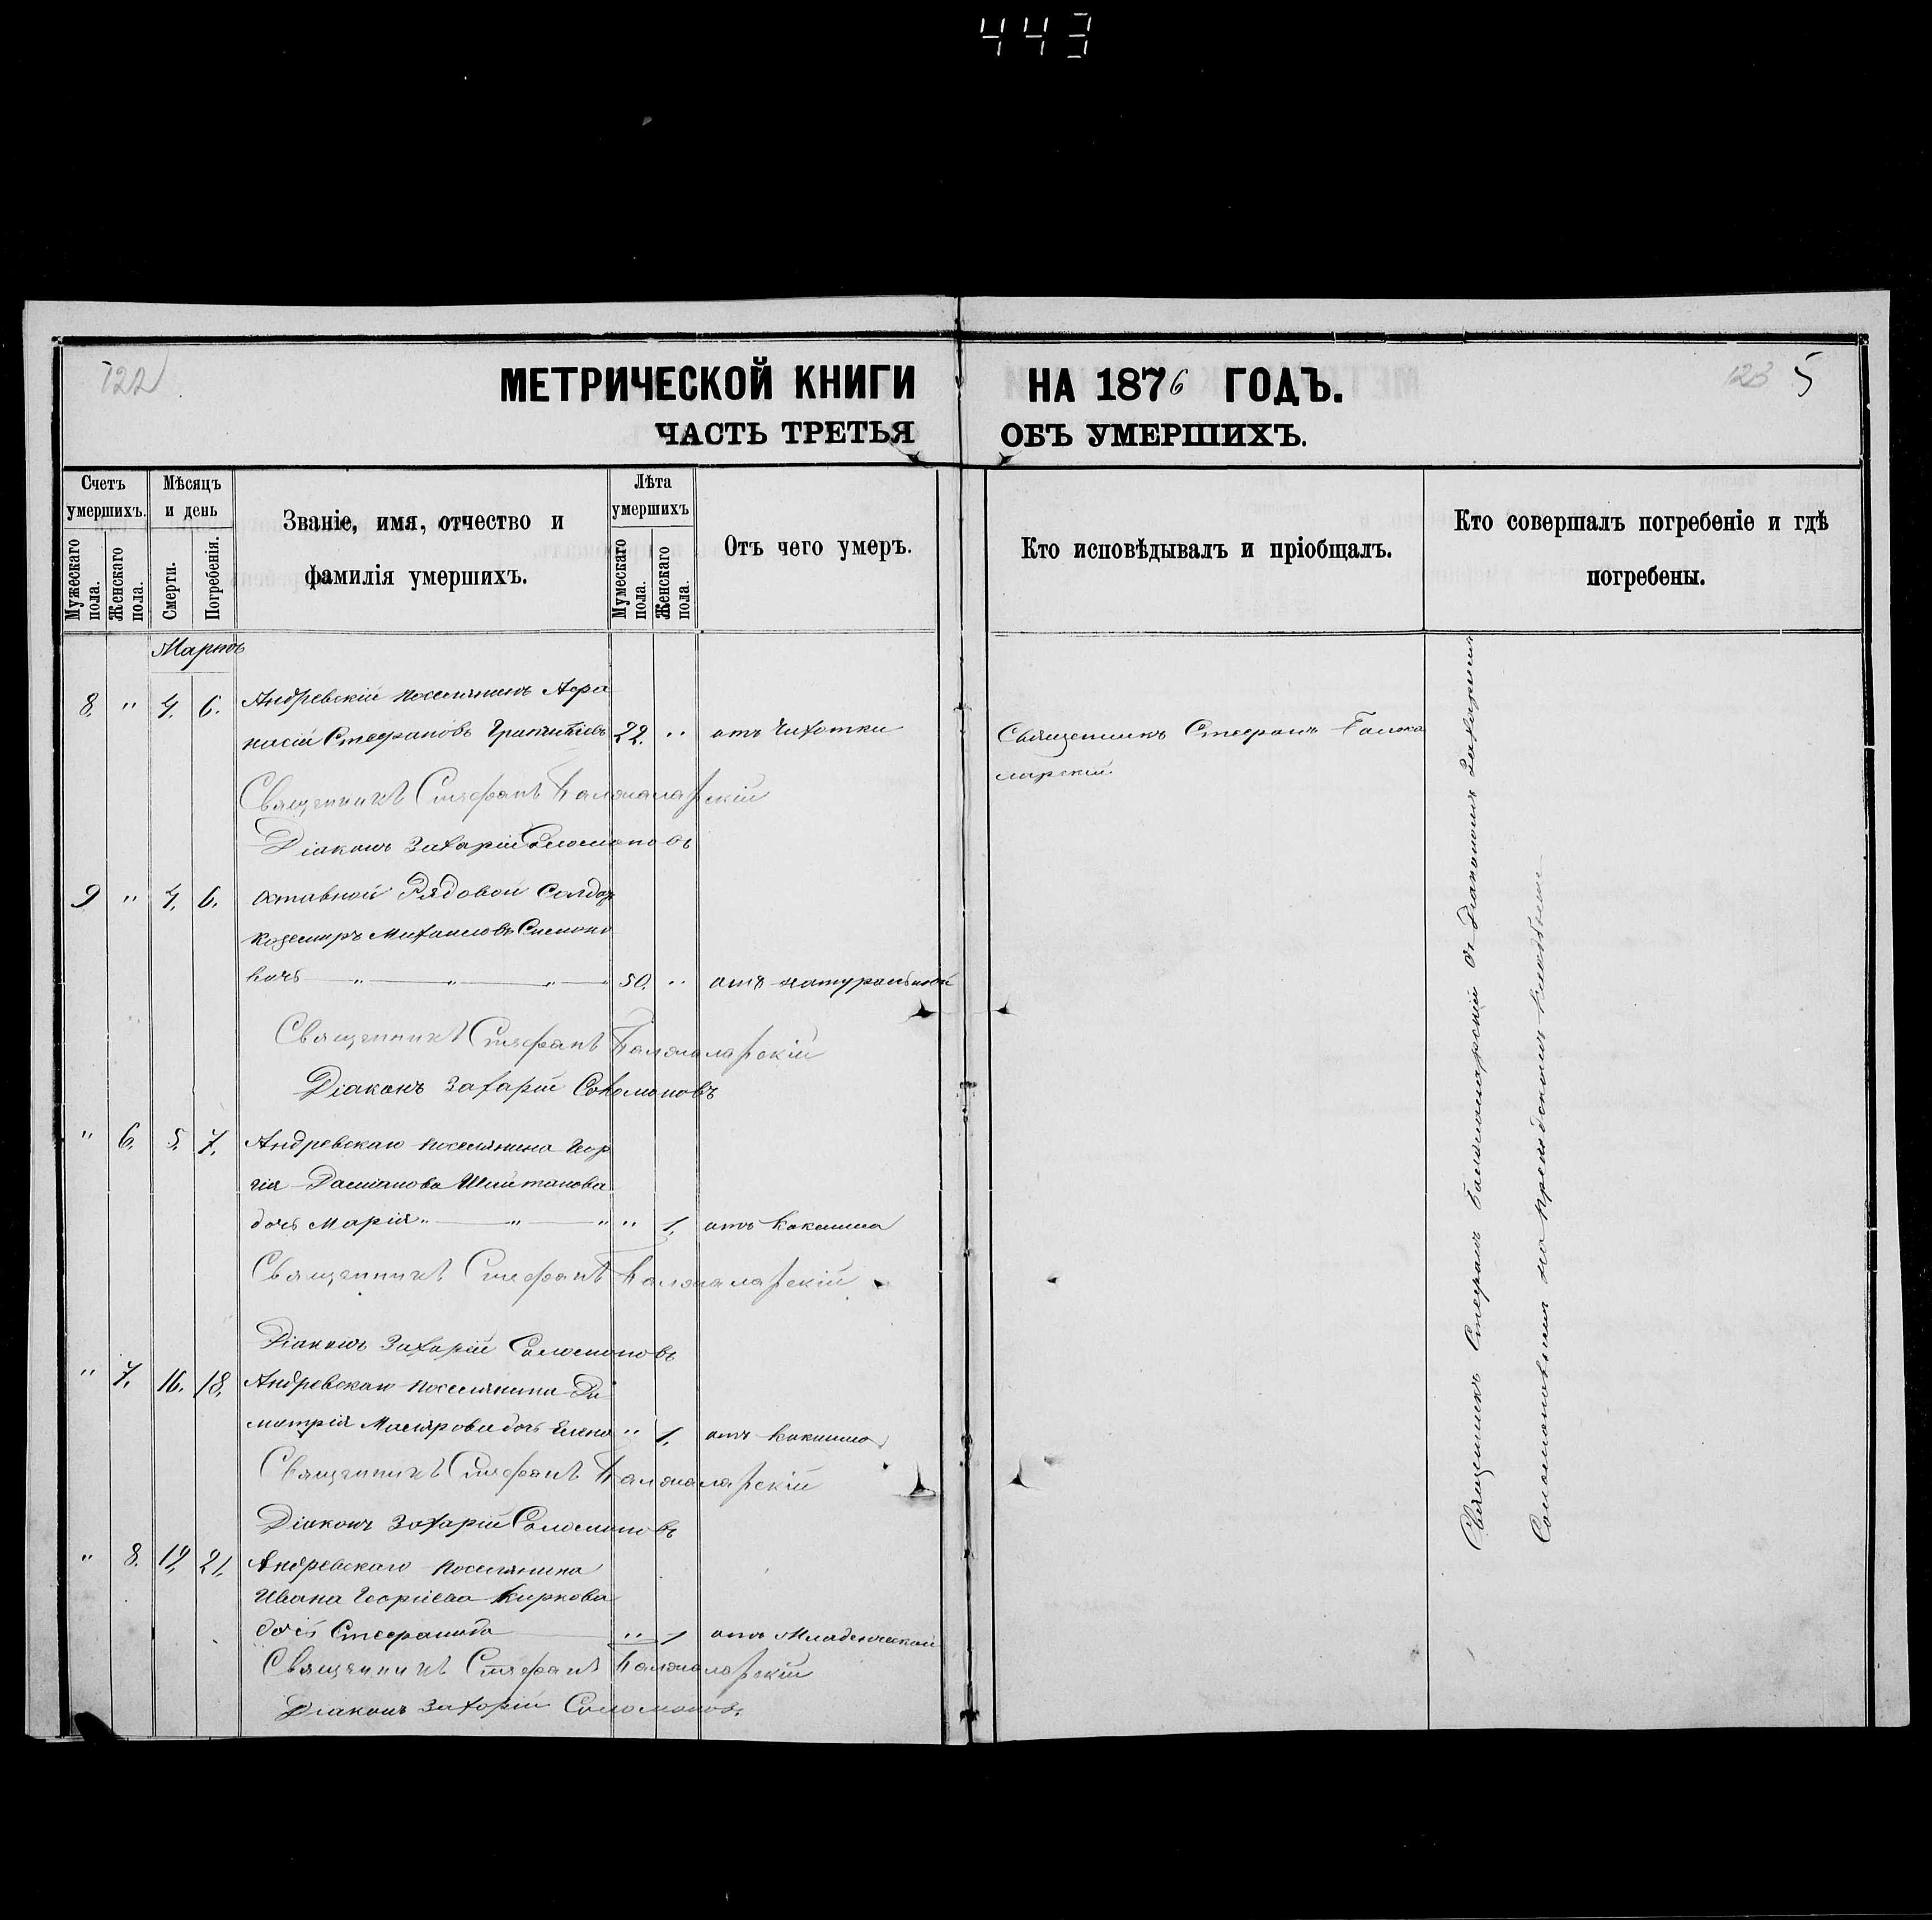 443
122
МЕТРИЧЕСКОЙ КНИГИ НА 1876 ГОДЪ.
123 5
ЧАСТЬ ТРЕТЬЯ ОБЪ УМЕРШИХЪ.
Счетъ умершихъ.
Мужескаго пола.
Женскаго пола.
Мѣсяцъ и день
Смерти.
Погребенія.
Званіе, имя, отчество и
фамилія умершихъ.
Лѣта умершихъ
Мумескаго пола.
Женскаго пола.
Отъ чего умеръ.
Кто исповѣдывалъ и пріобщалъ.
Кто совершалъ погребеніе и гдѣ
погребены.
Мартъ
8. " 4. 6. Андревскій поселянинъ Афа
насій Стефановъ 22. " отъ Чихотки
Священникъ Стефанъ Балжаларскій
Діаконъ Захарій Соломоновъ
9 " 4. 6. Отставной Рядовой Солдат
Михаиловъ Симоно
вичъ " " " 50. " отъ натуральной
Священникъ Стефанъ Балжаларскій
Діаконъ Захарій Соломоновъ
" 6. 5. 7. Андревскаго поселянина Геор
гія Даміанова Шийтанова
дочь Марія " " " " 1. отъ Кокшиша
Священникъ Стефанъ Балжаларскій
Діаконъ Захарій Соломоновъ
" 7. 16. 18. Андревскаго поселянина Ди
митрія Маслярова дочь Елена " 1. отъ Кокшиша
Священникъ Стефанъ Балжаларскій
Діаконъ Захарій Соломоновъ
" 8. 19. 21. Андревскаго поселянина
Ивана Георгіева Киркова
дочь Стефанида " 1 отъ Младенческой
Священникъ Стефанъ Балжаларскій
Діаконъ Захарій Соломоновъ
Священникъ Стефанъ Балжа
ларскій
Священникъ Стефанъ Балжаларскій съ Діакономъ Захаріемъ
Соломоновымъ на приходскомъ кладбищѣ